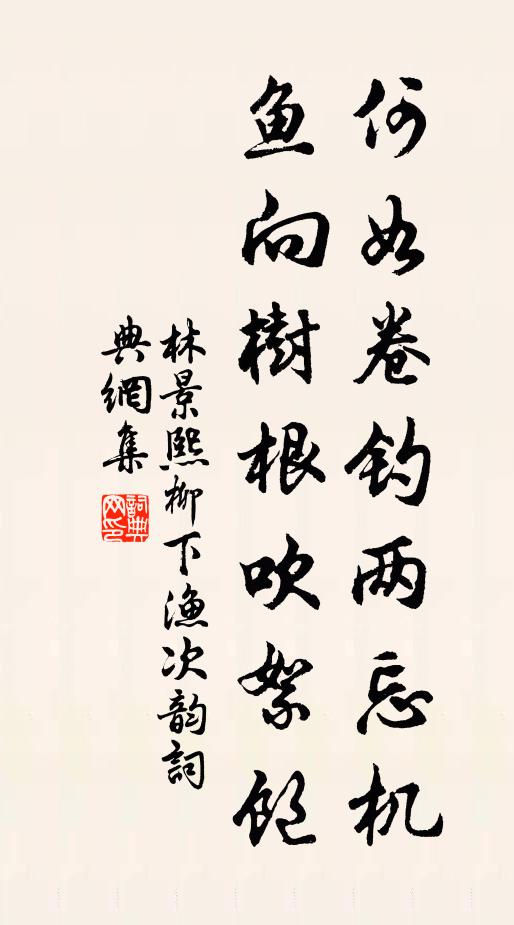 何如卷钓两忘机
鱼向樹根吹絮飽
林景熙柳下渔次韵詞
典網集
詞典网印